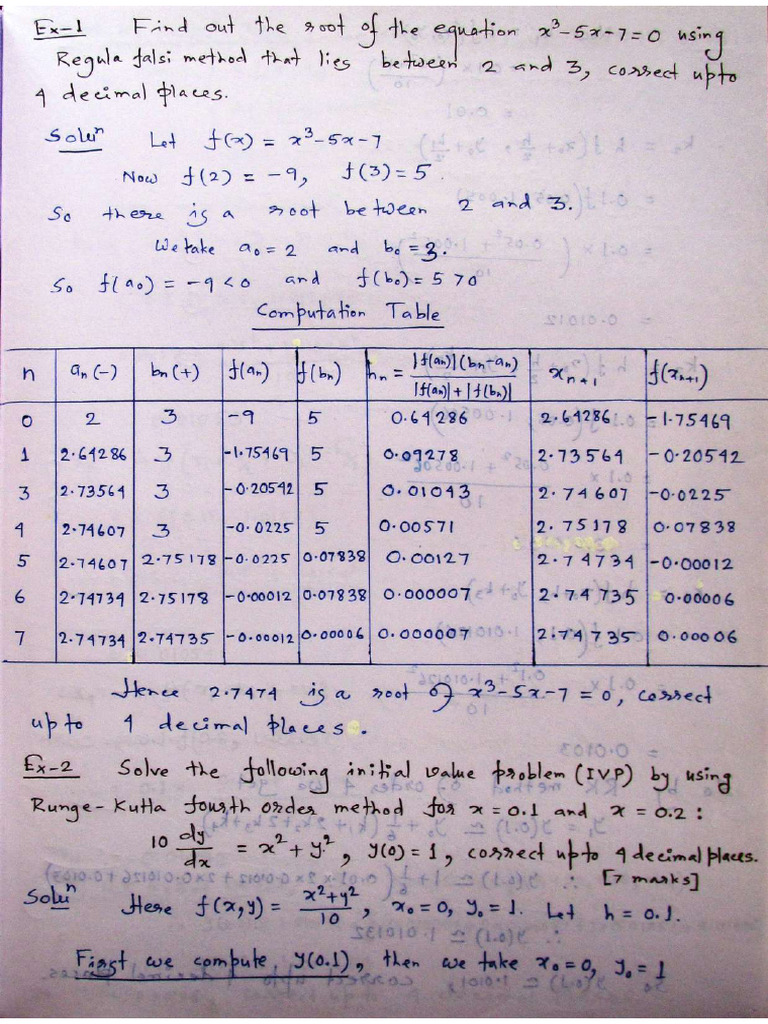 Ex-1 Find out the root of the equation x³-5x-7=0 using
Regula falsi method that lies between 2 and 3, correct upto
4 decimal places.
Soluⁿ Let f(x) = x³-5x-7
Now f(2) = -9, f(3) = 5.
So there is a root between 2 and 3.
We take a₀ = 2 and b₀ = 3.
So f(a₀) = -9 < 0 and f(b₀) = 5 > 0
Computation Table
n aₙ(-) bₙ(+) f(aₙ) f(bₙ) hₙ = |f(aₙ)|(bₙ-aₙ) / |f(aₙ)|+|f(bₙ)| xₙ₊₁ f(xₙ₊₁)
0 2 3 -9 5 0.64286 2.64286 -1.75469
1 2.64286 3 -1.75469 5 0.09278 2.73564 -0.20542
3 2.73564 3 -0.20542 5 0.01043 2.74607 -0.0225
4 2.74607 3 -0.0225 5 0.00571 2.75178 0.07838
5 2.74607 2.75178 -0.0225 0.07838 0.00127 2.74734 -0.00012
6 2.74734 2.75178 -0.00012 0.07838 0.000007 2.74735 0.00006
7 2.74734 2.74735 -0.00012 0.00006 0.000007 2.74735 0.00006
Hence 2.7474 is a root of x³-5x-7=0, correct
upto 4 decimal places.
Ex-2 Solve the following initial value problem (IVP) by using
Runge-Kutta fourth order method for x = 0.1 and x = 0.2 :
10 dy/dx = x²+y², y(0)=1, correct upto 4 decimal places.
[7 marks]
Soluⁿ Here f(x,y) = x²+y²/10, x₀=0, y₀=1. Let h = 0.1.
First we compute y(0.1), then we take x₀=0, y₀=1